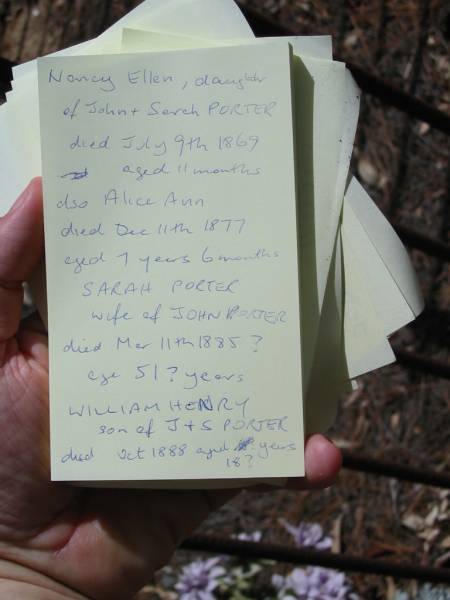 Nancy Ellen, daughter
of John + Sarah PORTER
died July 9th 1869
aged 11 months
also Alice Ann
died Dec 11th 1877
aged 7 years 6 months
SARAH PORTER
wife of JOHN PORTER
died Mar 11th 1885 ?
age 51? years
WILLIAM HENRY
son of J + S PORTER
died Oct 1888 aged years
18?